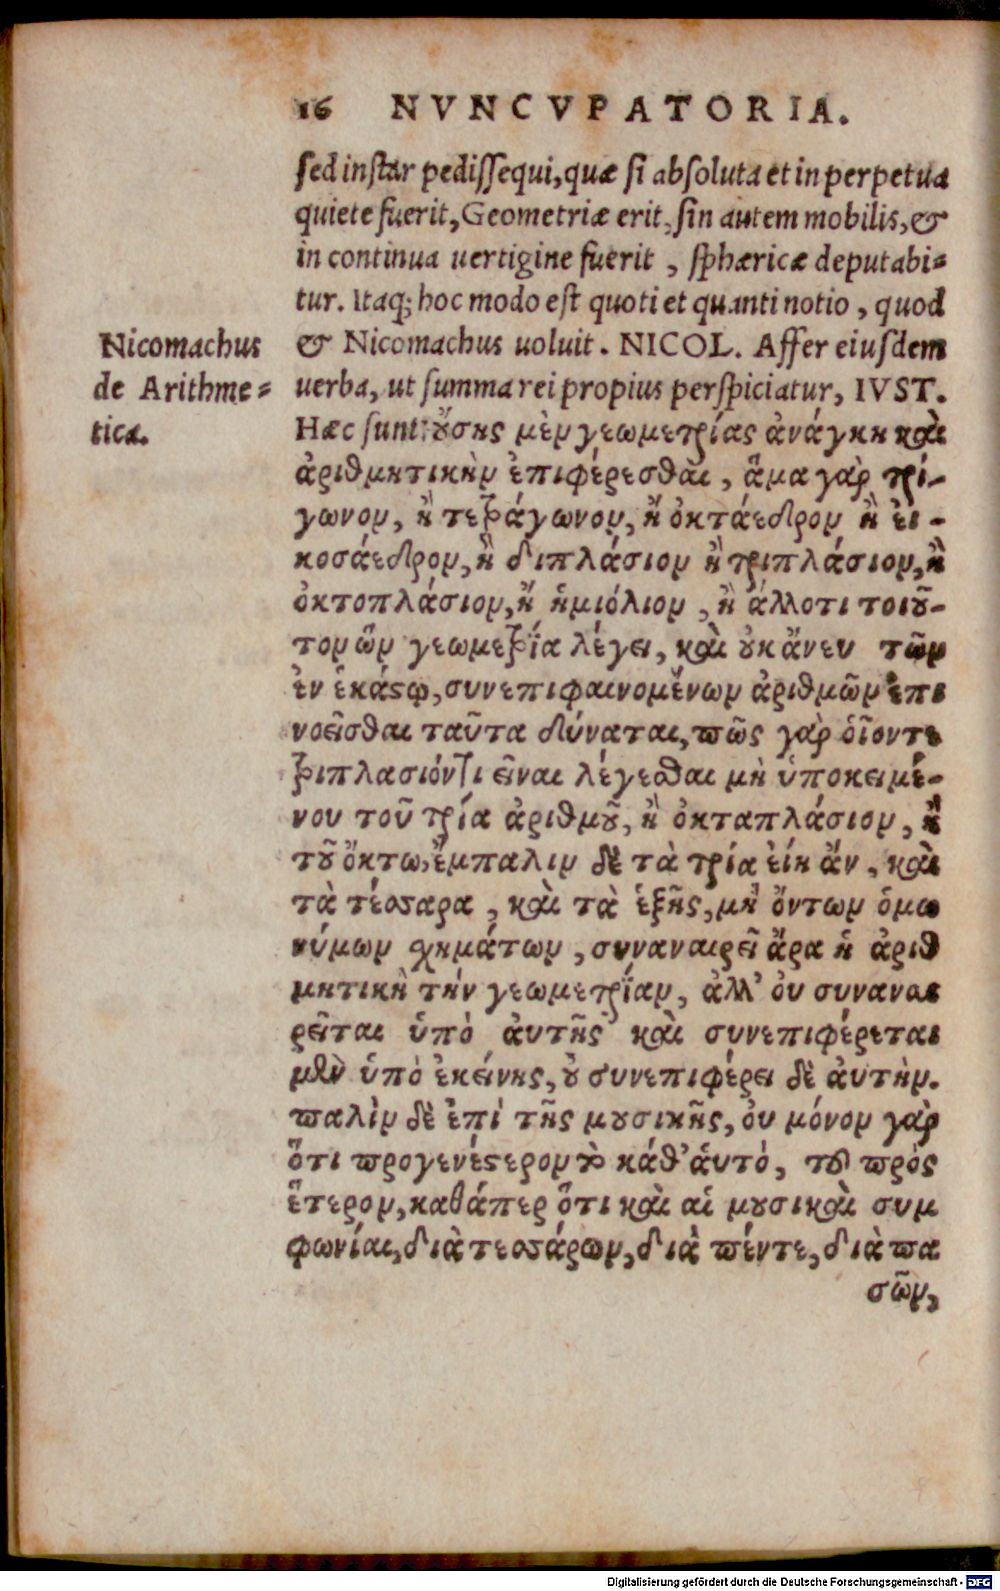 16 NVNCVPATORIA.
sed instar pedissequi, quæ si absoluta et in perpetua
quiete fuerit, Geometriæ erit, sin autem mobilis, &
in continua uertigine fuerit , sphæricæ deputabi-
tur. Itaq; hoc modo est quoti et quanti notio , quod
Nicomachus
de Arithme-
tica.
& Nicomachus uoluit . NICOL. Affer eiusdem
uerba, ut summa rei propius perspiciatur, IVST.
Hæc sunt: ὄυσης μὲν γεωμετρίας ἀνάγκη καὶ
ἀριθμητικὴν ἐπιφέρεσθαι , ἅμα γὰρ τρί-
γωνον, ἢ τετράγωνον, ἢ ὀκτάεδρον ἢ ἐι-
κοσάεδρον, ἢ διπλάσιον ἢ τριπλάσιον, ἢ
ὀκτοπλάσιον, ἢ ἡμιόλιον , ἢ ἄλλοτι τοιοῦ-
τον ὢν γεωμετρΐα λέγει, καὶ ουκ ἄνευ τῶν
ἐν ἑκάστῳ, συνεπιφαινομένων ἀριθμῶν ἐπι
νοεῖσθαι ταῦτα δύναται, πῶς γὰρ ὁῖοντε
τριπλασιόντι εῖναι λέγεσθαι μὴ ὑποκειμέ-
νου τοῦ τρία ἀριθμοῦ, ἢ ὀκταπλάσιον, ἢ
τοῦ ὄκτω, ἔμπαλιν δὲ τὰ τρία ἐίη ἄν , καὶ
τὰ τέσσαρα , καὶ τὰ ἑξῆς, μὴ ὄντων ὁμω
νύμων σχημάτων , συναναιρεῖ ἄρα ἡ ἀριθ
μητικὴ τήν γεωμετρΐαν, ἀλλ' ὀυ συναναι
ρεῖται ὑπὸ ἀυτῆς καὶ συνεπιφέρεται
μὲν ὑπὸ ἐκείνης, ὀυ συνεπιφέρει δὲ ἀυτὴν.
παλὶν δὲ ἐπὶ τῆς μουσικῆς, ὀυ μόνον γὰρ
ὅτι προγενέστερον τὸ κάθ' ἁυτὸ, τοῦ πρός
ἕτερον, καθάπερ ὅτι καὶ αἱ μουσικαὶ συμ
φωνίαι, διὰ τεσσάρων, διὰ πέντε, διὰ πα
σῶν,
Digitalisierung gefördert durch die Deutsche Forschungsgemeinschaft - DFG